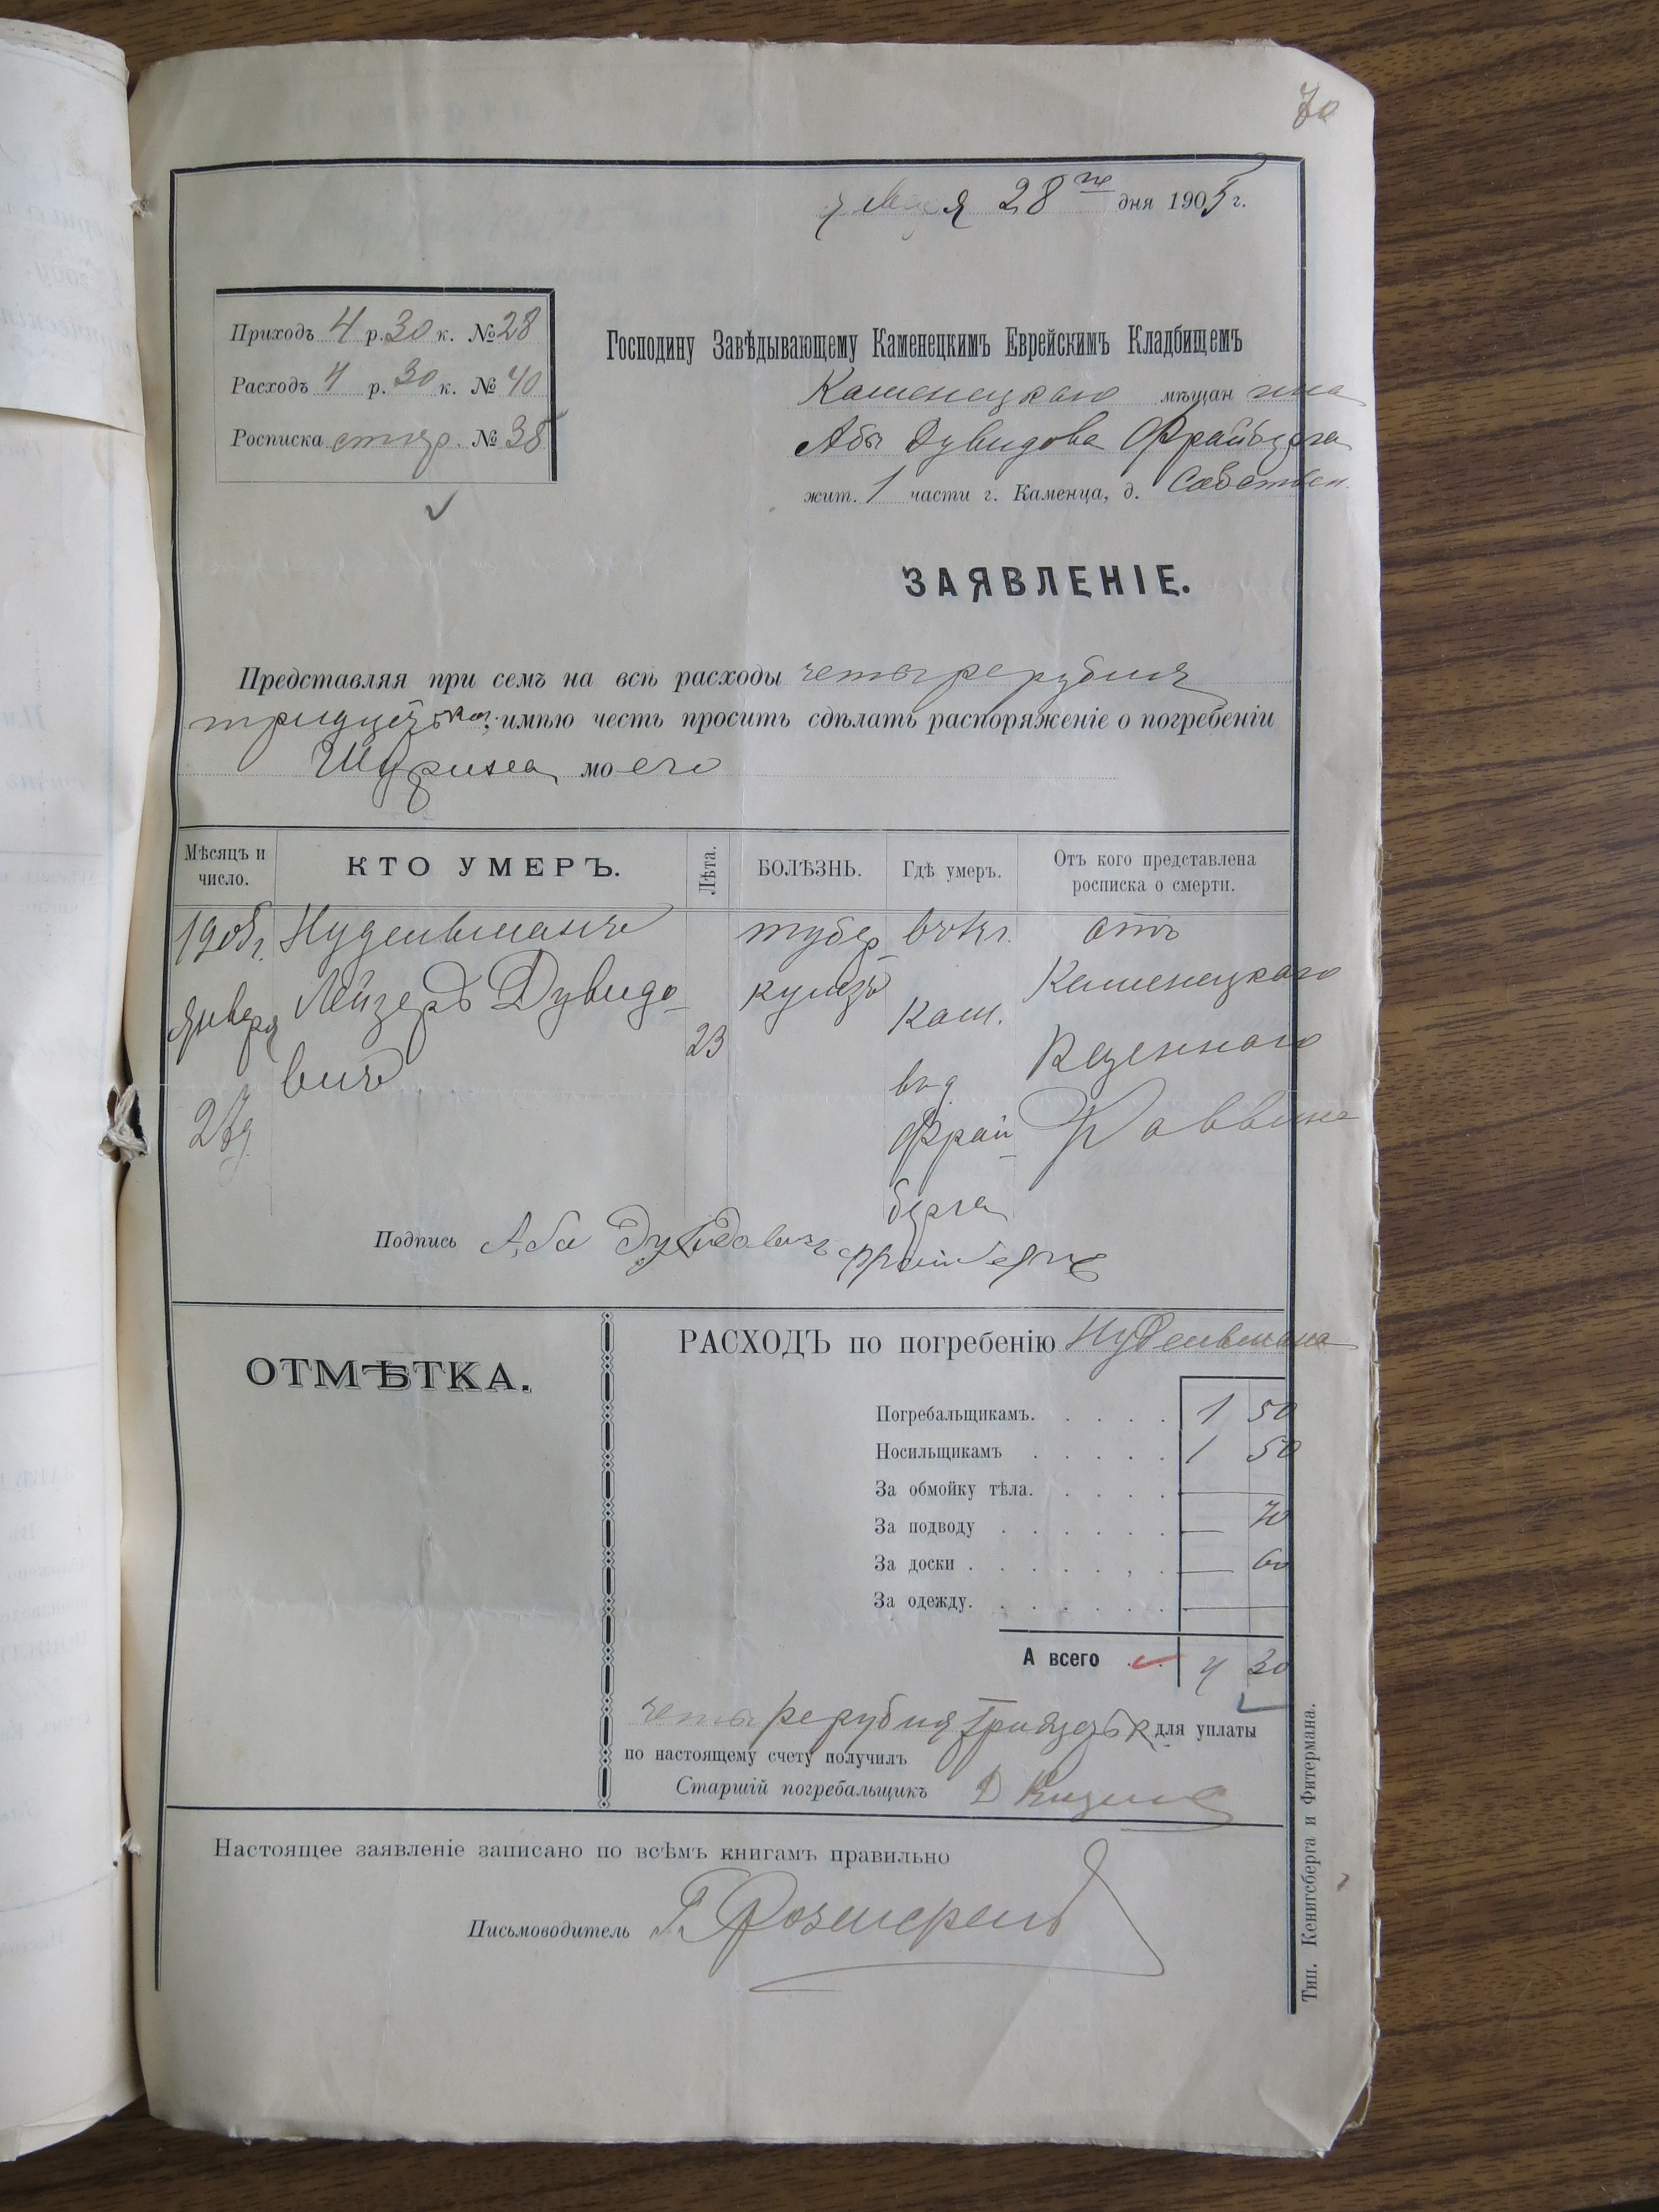 70
28 го дня 1905 г.
Приходъ 4 р. 30 к. № 28
Расходъ 4 р. 30 к. № 40
Росписка стар. № 38
Господину Завѣдывающему Каменецкимъ Еврейскимъ Кладбищемъ
Каменецкаго мѣщанина
Абы Дувидова Фрайберга
жит. 1 части г. Каменца, д. Собствен.
ЗАЯВЛЕНІЕ.
Представляя при семъ на всѣ расходы четырерубля
тридцать коп. имѣю честь просить сдѣлать распоряженіе о погребеніи
Шурина моего
Мѣсяцъ и число.
КТО УМЕРЪ.
Лѣта.
БОЛѢЗНЬ.
Гдѣ умеръ.
Отъ кого представлена росписка о смерти.
1905 г.
Января
27 д.
Нудельманъ
Лейзеръ Дувидо-
вичъ
23
тубер-
кулезъ
въ г.
Кам.
въ д.
Фрай-
берга
отъ
Каменецкаго
Казеннаго
Раввина
Подпись Аба Дувидовичъ Фрайбергъ
ОТМѢТКА.
РАСХОДЪ по погребенію Нудельмана
Погребальщикамъ. . . . . 1 50
Носильщикамъ . . . . . 1 50
За обмойку тѣла. . . . . —
За подводу . . . . . . — 70
За доски . . . . . . . — 60
За одежду. . . . . . . —
А всего . . 4 30
четырерубля тридцать к. для уплаты
по настоящему счету получилъ
Старшій погребальщикъ Д
Настоящее заявленіе записано по всѣмъ книгамъ правильно
Письмоводитель Г.
Тип. Кенигсберга и Фитермана.